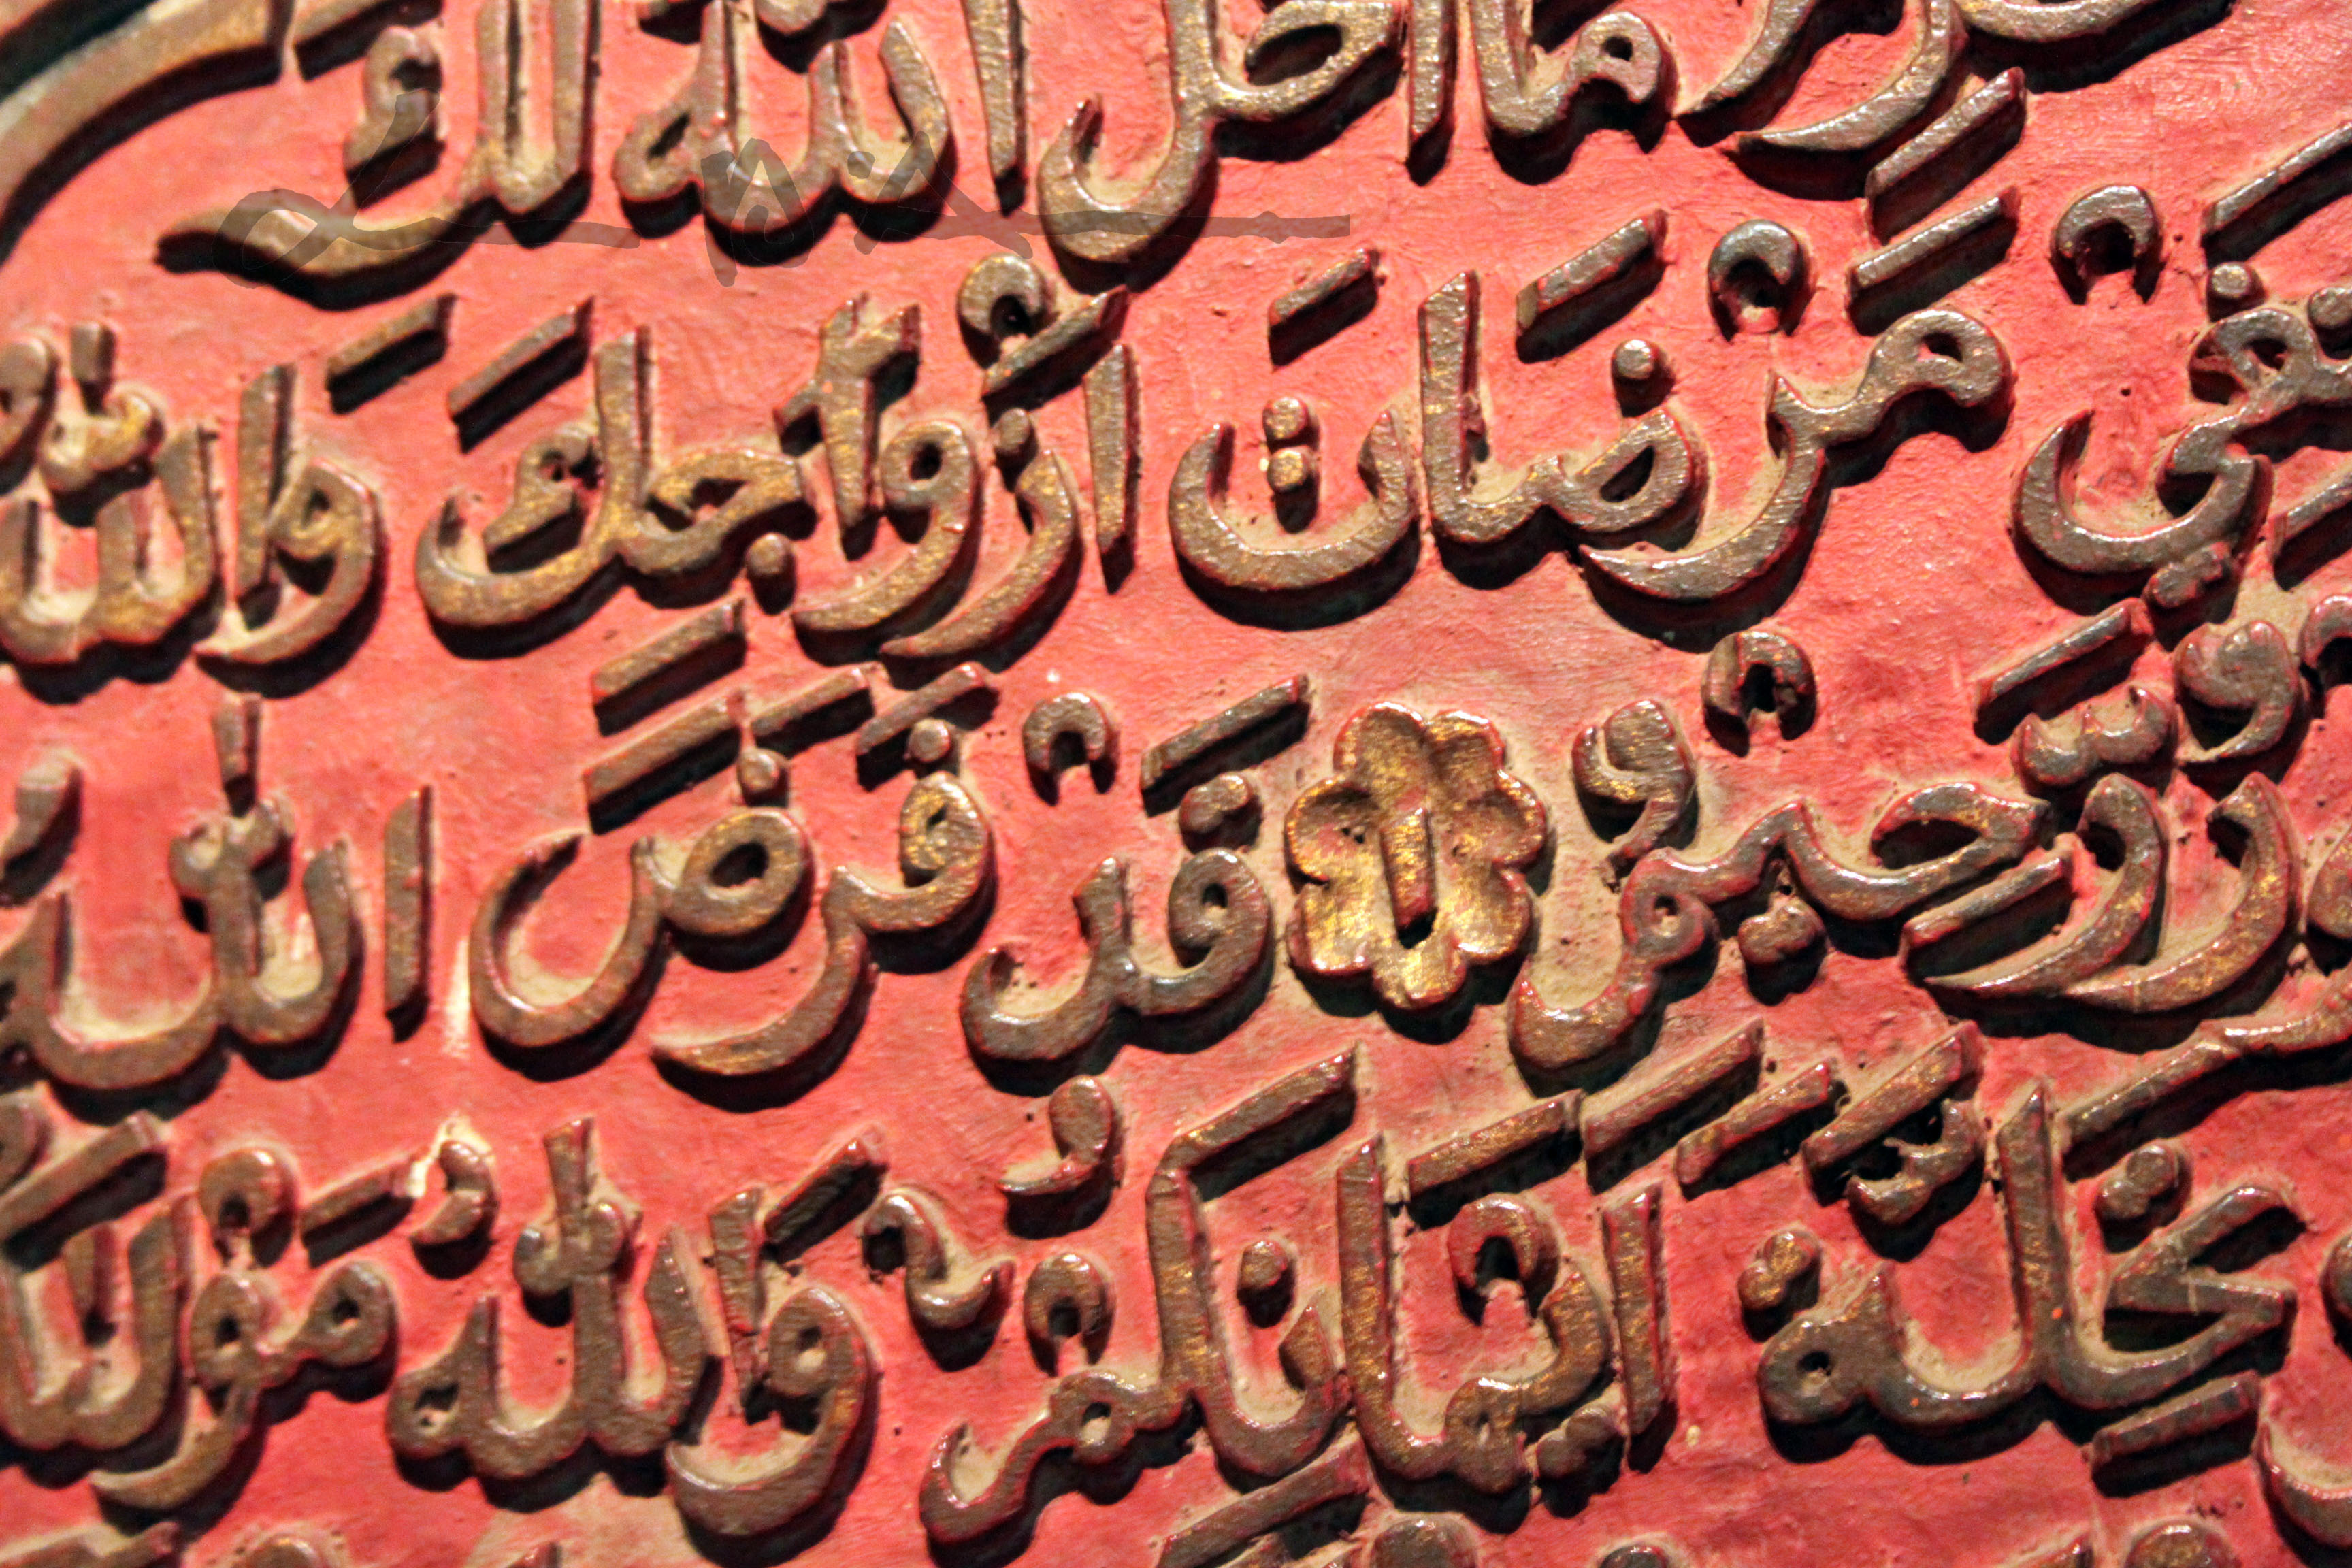 مَا أَحَلَّ اللهُ لَكَ
تَبْتَغِي مَرْضَاتَ اَزْوَاجِكَ وَاللهُ
رَّحِيْمٌ قَدْ فَرَضَ اللهُ
تَحِلَّةَ اَيْمَانِكُمْ وَاللهُ مَوْلَا